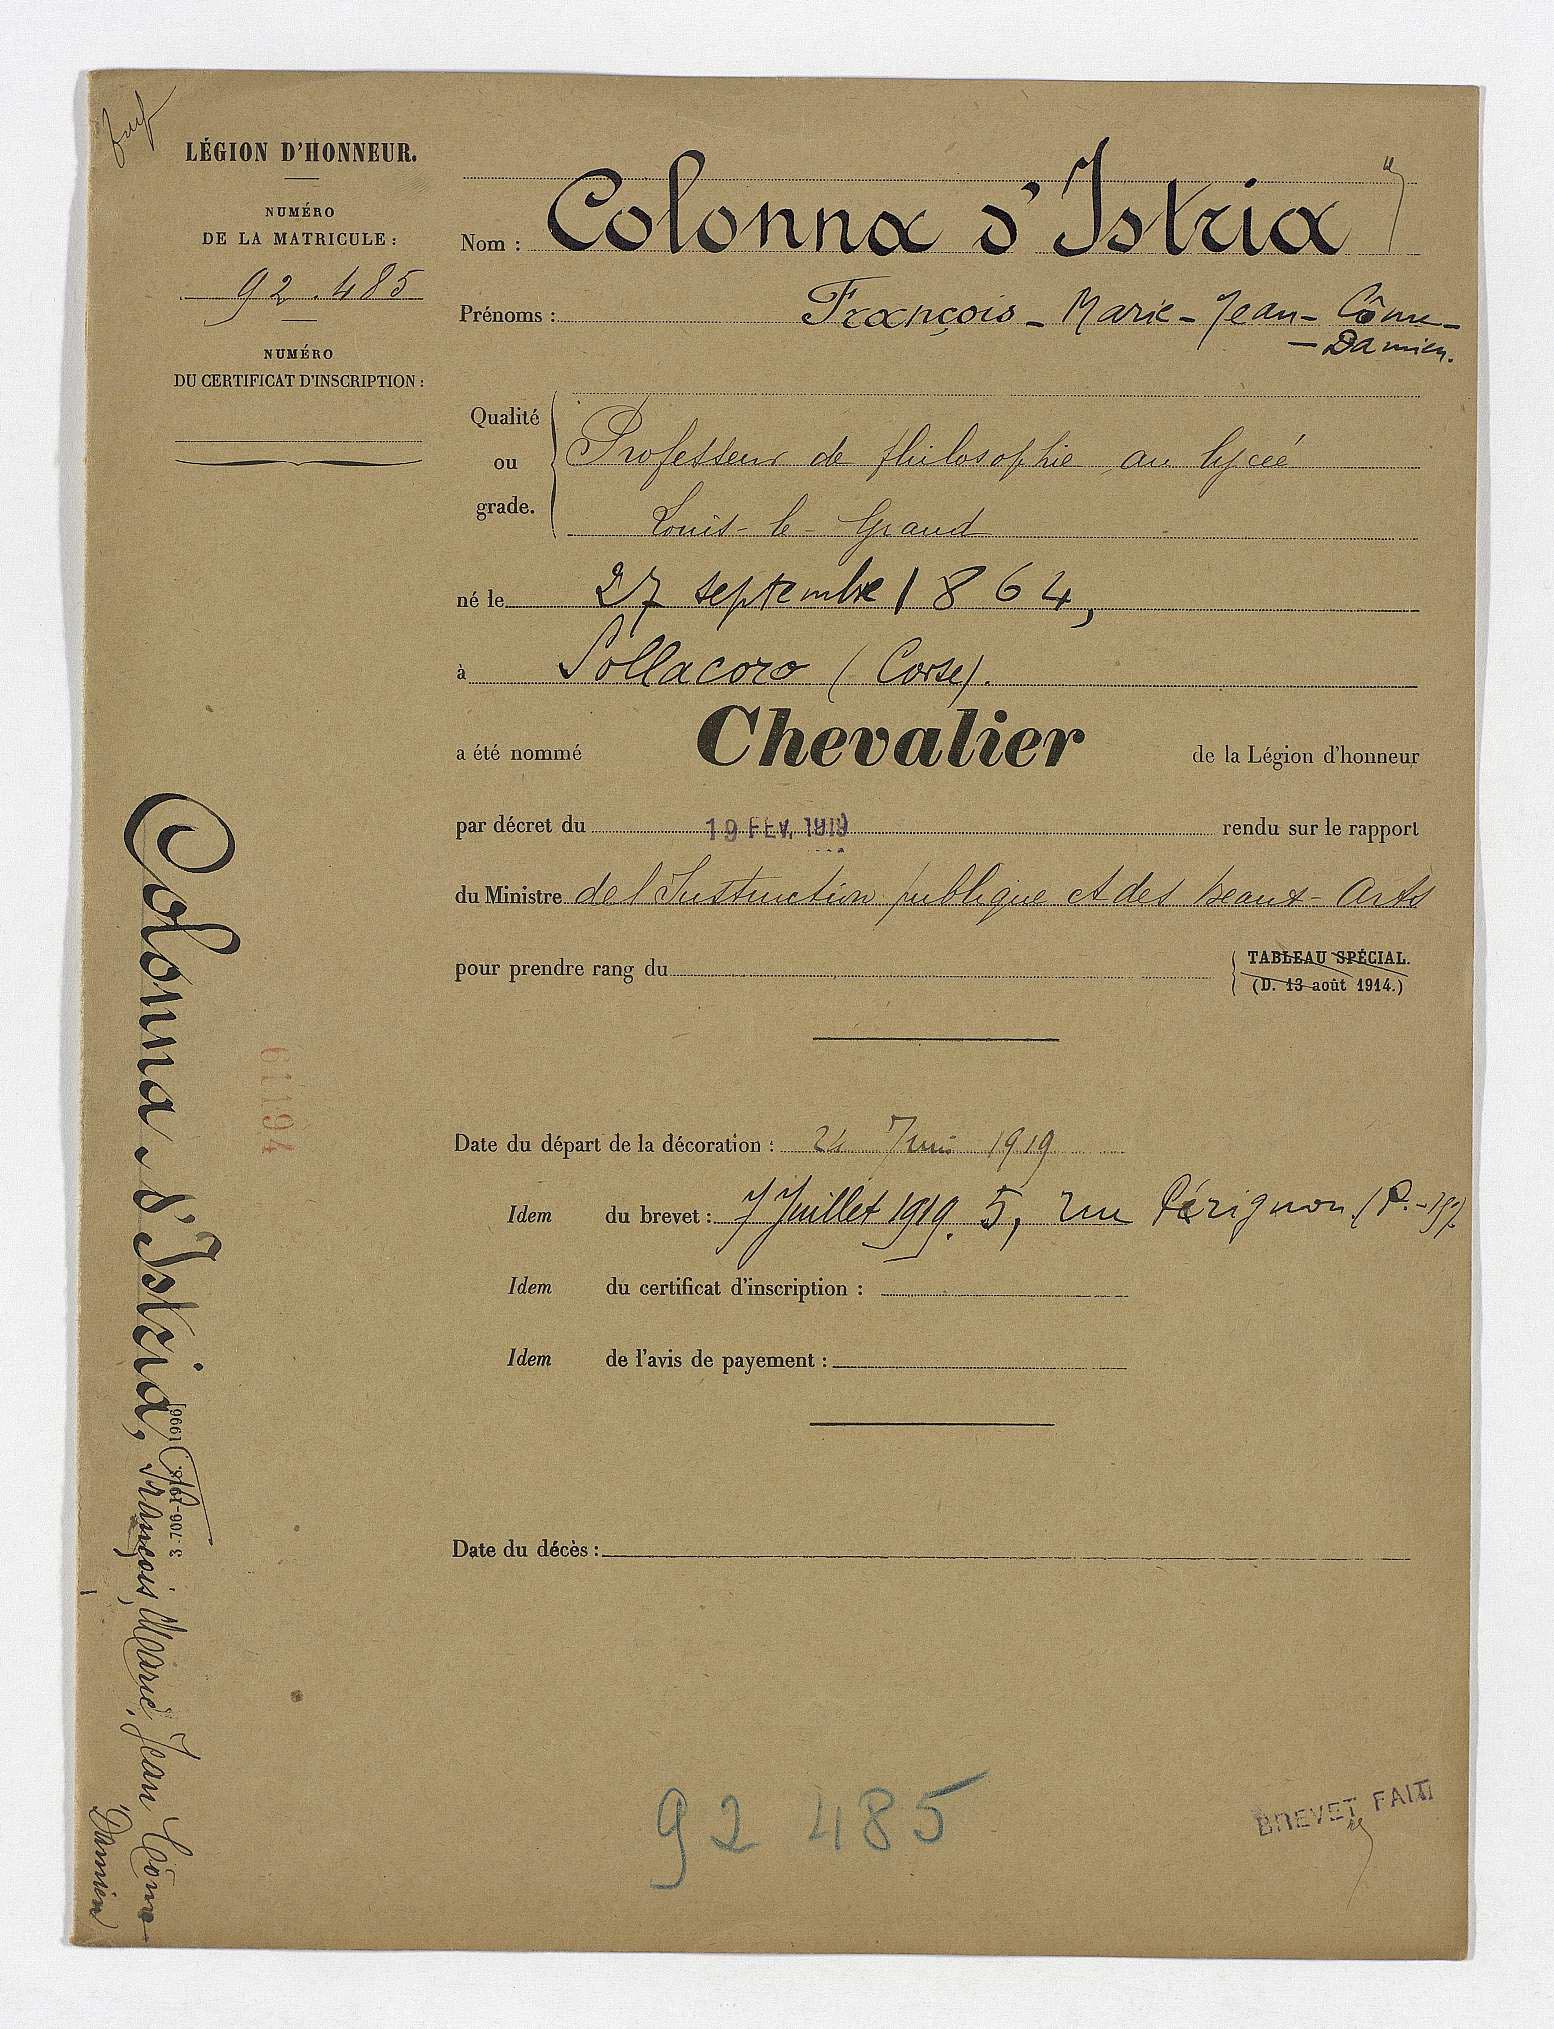 LÉGION D'HONNEUR.
NUMÉRO
DE LA MATRICULE :
92.485
NUMÉRO
DU CERTIFICAT D'INSCRIPTION :
Nom : Colonna d'Istria
Prénoms : François - Marie - Jean - Côme -
- Damien.
Qualité
ou
grade.
Professeur de philosophie au lycée
Louis-le-Grand
né le 27 septembre 1864,
à Sollacaro (Corse).
a été nommé Chevalier de la Légion d'honneur
par décret du 19 FEV. 1919 rendu sur le rapport
du Ministre de l'Instruction publique et des beaux-Arts
pour prendre rang du
TABLEAU SPÉCIAL.
(D. 13 août 1914.)
Date du départ de la décoration : 24 Juin 1919
Idem du brevet : 7 Juillet 1919. 5, rue Pérignon (P.-15e)
Idem du certificat d'inscription :
Idem de l'avis de payement :
Date du décès :
92 485
BREVET FAIT
Colonna d'Istria, François, Marie, Jean Côme
Damien
61194
3-706-1918.